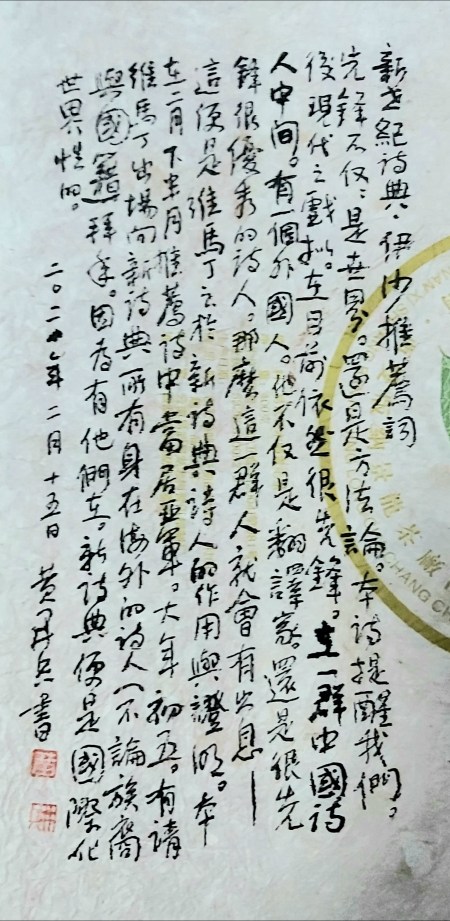 新世紀詩典·伊沙推薦詞
先鋒不仅仅是世界。還是方法論。本诗提醒我們。
後現代之戲拟。在目前依然很先鋒。在一群中國诗
人中间。有一個外國人。他不仅是翻譯家。還是很先
鋒很優秀的诗人。那麼這一群人就會有出息——
這便是維馬丁之於新诗典诗人的作用與證明。本
在二月下半月推薦诗中當居亚軍。大年初五。有請
維馬丁出場向新诗典所有身在海外的诗人(不論族裔
與國籍)拜年。因為有他們在。新诗典便是國際化
世界性的。
二〇二一年二月十五日 黄開兵書
CHANG CH